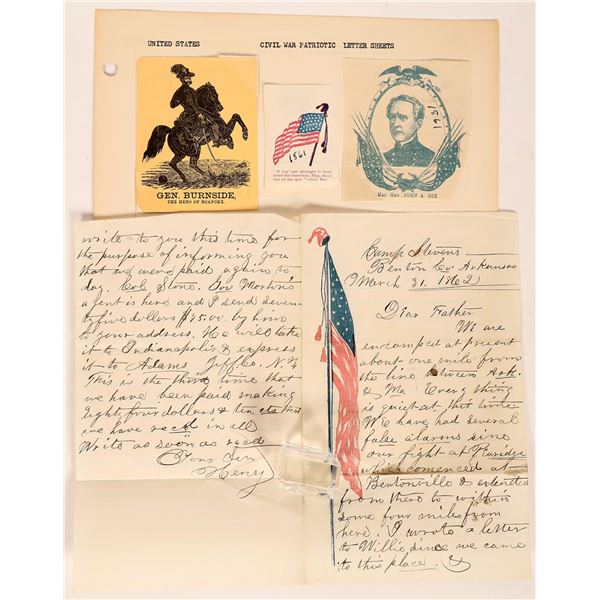 UNITED STATES CIVIL WAR PATRIOTIC LETTER SHEETS
GEN. BURNSIDE,
THE HERO OF ROANOKE.
1861
"If any one attempts to haul
down the American Flag, shoot
him on the spot."—Gen. Dix.
1861
MAJ. GEN. JOHN A. DIX
Camp Stevens
Benton Co Arkansas
March 31. 1862
Dear Father
We are
encamped at present
about one mile from
the line between Ark.
& Mo. Every thing
is quiet at this time
We have had several
false alarms sinc
our fight at
which comenced at
Bentonville & extended
from there to within
some four miles from
here. I wrote a letter
to Willie since we came
to this place. &
write to you this time for
the purpose of informing you
that we were paid again to
day. Col Stone. Gov Morton's
agent is here and I send seven
ty five dollars $75.00. by him
to your address. He will take
it to Indianapolis & express
it to Adams Jeff. Co. N.Y
This is the third time that
we have been paid making
Eighty four dollars & ten cts that
we have recd in all
Write as soon as recd
Your Son
Henry